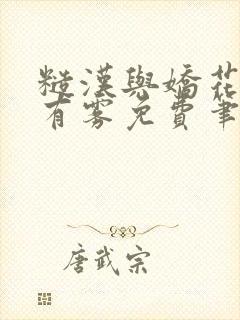 糙漢與嬌花
有霧免費筆
唐武宗